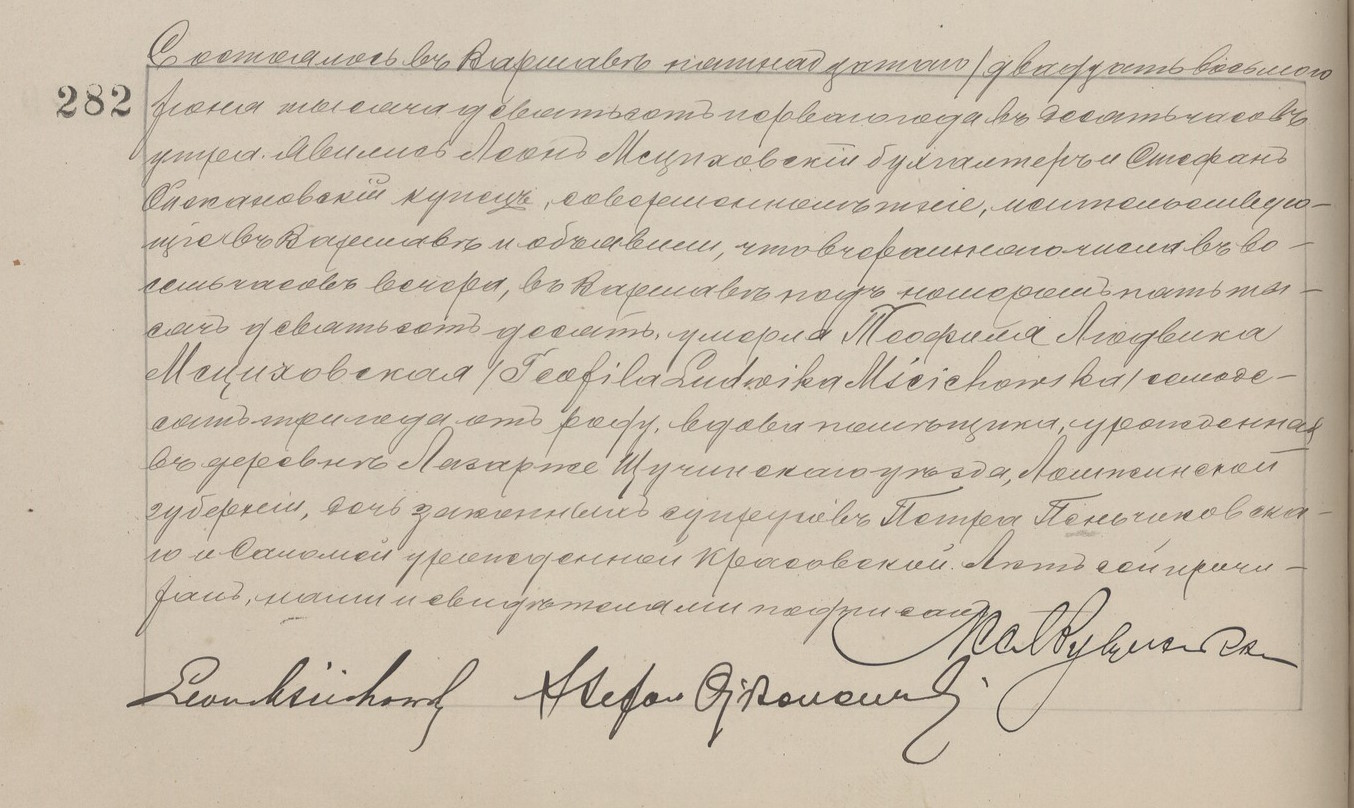 Состоялось въ Варшавѣ пятнадцатаго / двадцать восьмого
282
Iюня тысяча девятьсотъ перваго года въ десять часовъ
утра. Явились Леонъ Мсциховскій бухгалтеръ и Стефанъ
купецъ, совершеннолѣтніе, жительствую-
щіе въ Варшавѣ и объявили, что вчерашняго числа въ во-
семь часовъ вечера, въ Варшавѣ подъ номеромъ пять ты-
сячъ девятьсотъ десять, умерла Теофиля Людвика
Мсциховская / Teofila Ludwika Mścichowska / семьде-
сять три года отъ роду, вдова помѣщика, урожденная
въ деревнѣ Лазарже Щучинскаго уѣзда, Ломжинской
губерніи, дочь законныхъ супруговъ Петра Пеньчиковска-
го и Саломеи урожденной Красовской. Актъ сей прочи-
танъ, нами и свидѣтелями подписанъ
Leon Mścichowski Stefan